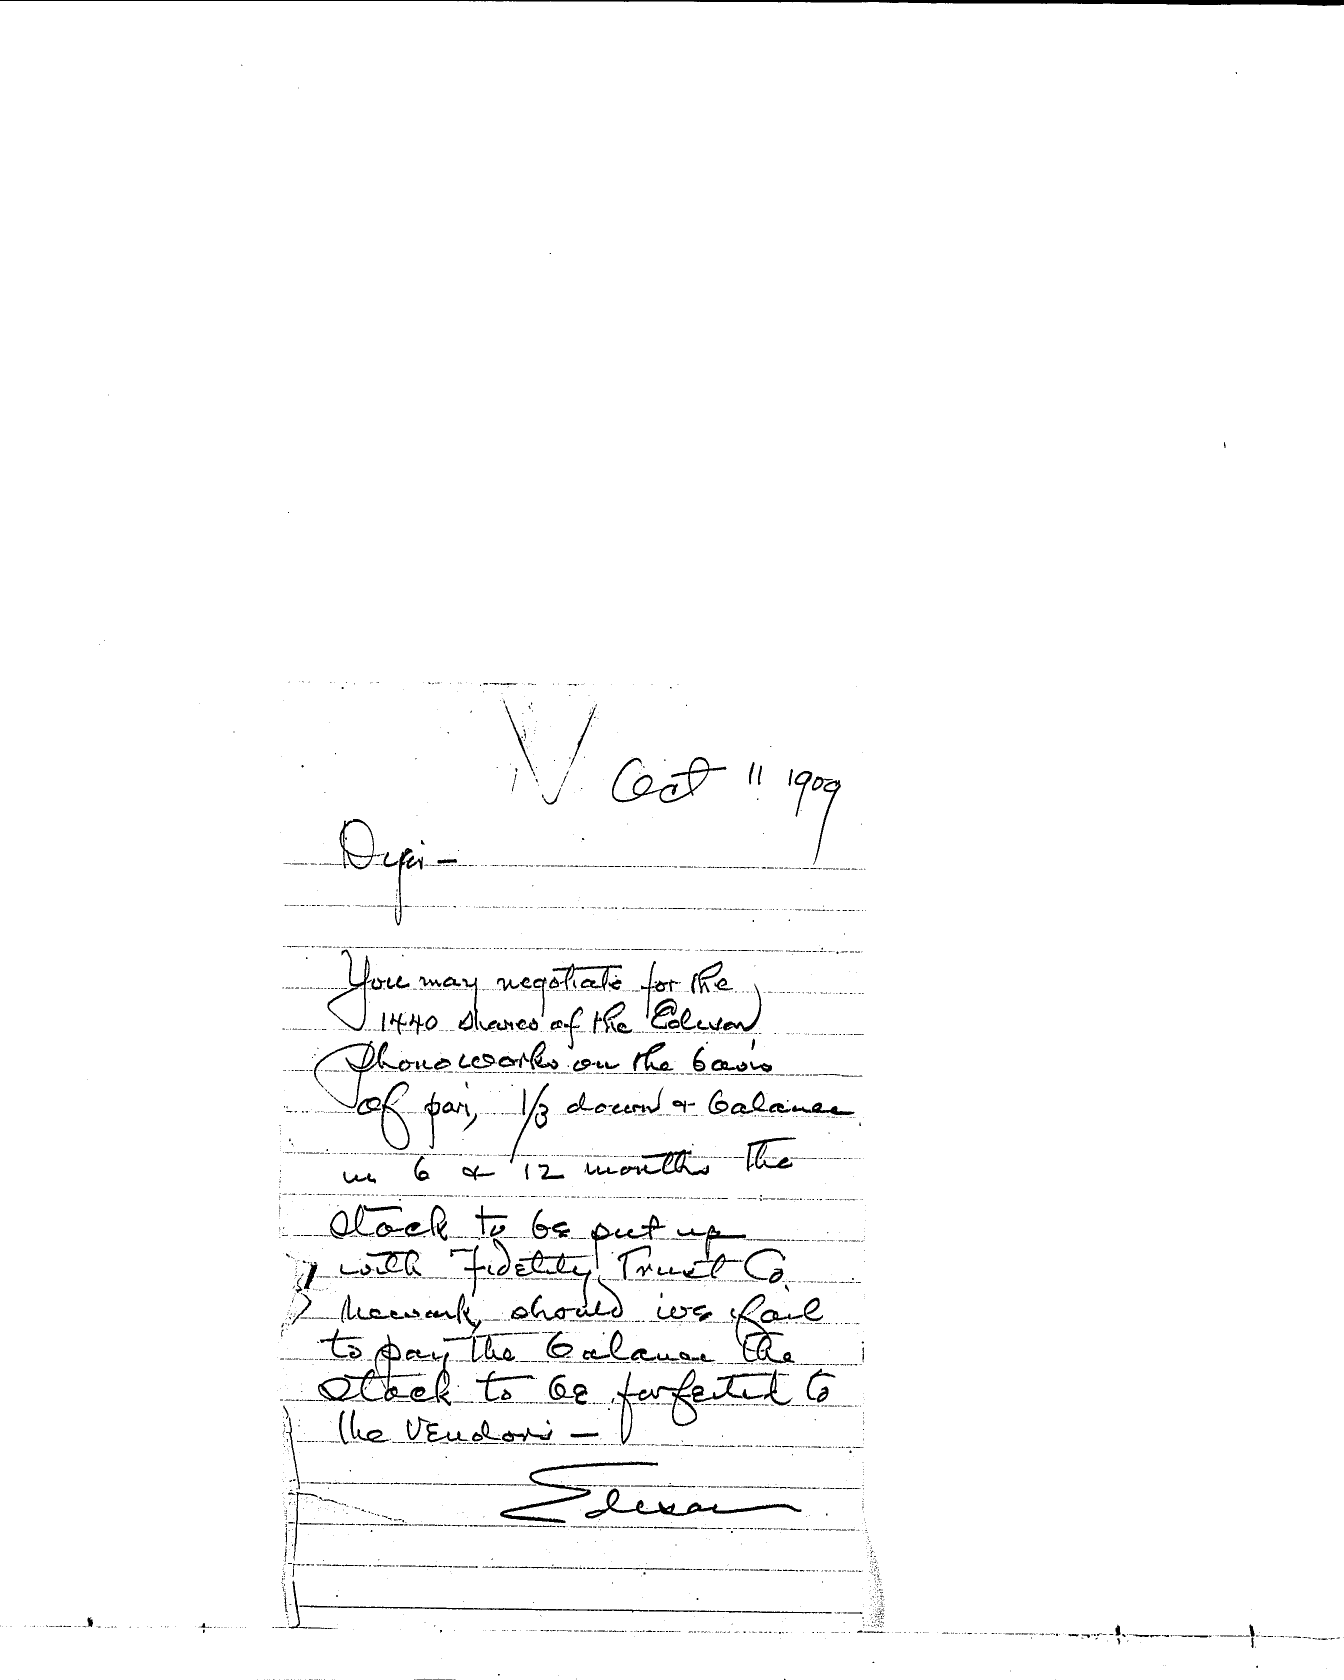 Oct 11 1909
Dyer -
You may negotiate for the
1440 shares of the Edison
Phono works on the basis
of par, 1/3 down & balance
in 6 & 12 months the
stock to be put up
with Fidelity Trust Co
Newark, should we fail
to pay the balance the
stock to be forfeited to
the Vendors -
Edison